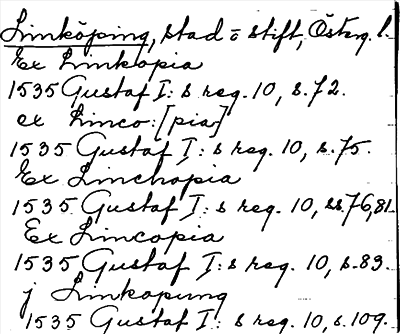 Linköping, stad o stift, Österg. l.
Ex Linkopia
1535 Gustaf I: s reg. 10, s. 72.
ex Linco: [pia]
1535 Gustaf I: s reg. 10, s. 75.
Ex Linchopia
1535 Gustaf I: s reg. 10, ss. 76, 81.
Ex Lincopia
1535 Gustaf I: s reg. 10, s. 83.
j Linkopung
1535 Gustaf I: s reg. 10, s. 109.